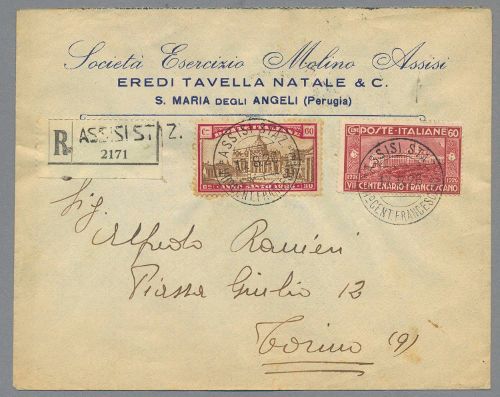 Società Esercizio Molino Assisi
EREDI TAVELLA NATALE & C.
S. MARIA DEGLI ANGELI (Perugia)
R ASSISI STAZ.
2171
POSTE ITALIANE 60
VII CENTENARIO FRANCESCANO
1226 1926
ANNO SANTO
Sig.
Alfredo Ranieri
Piazza Giulio 12
Torino (9)